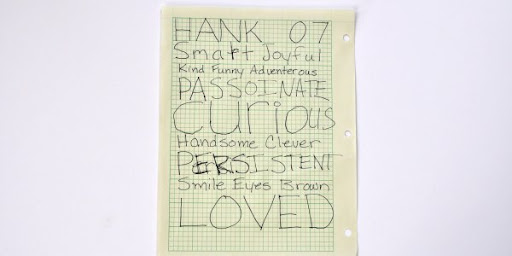 HANK 07
Smart Joyful
Kind Funny Adventerous
PASSOINATE
curious
Handsome Clever
PERSISTENT
Smile Eyes Brown
LOVED